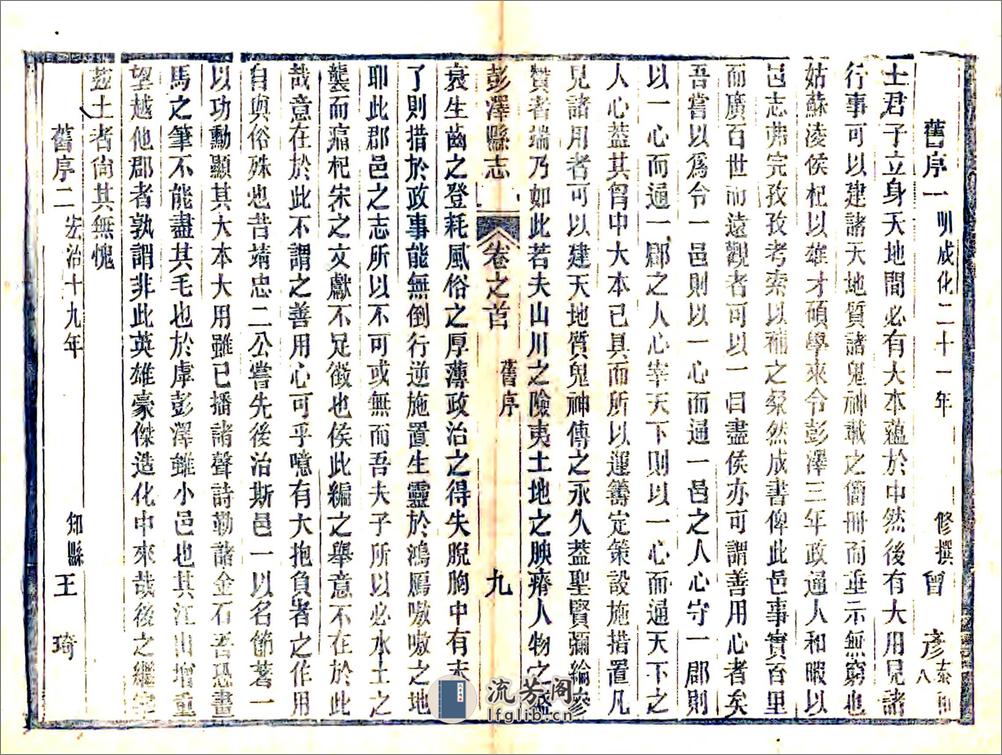 舊序一 明成化二十一年 修撰曾彥 泰和人
士君子立身天地間必有大本蘊於中然後有大用見諸
行事可以建諸天地質諸鬼神載之簡冊而垂示無窮也
姑蘇淩侯杞以雄才碩學來令彭澤三年政通人和暇以
邑志弗完孜孜考索以補之粲然成書俾此邑事實百里
而廣百世而遠觀者可以一目盡侯亦可謂善用心者矣
吾嘗以爲令一邑則以一心而通一邑之人心守一郡則
以一心而通一郡之人心宰天下則以一心而通天下之
人心葢其胷中大本已具而所以運籌定策設施措置凡
見諸用者可以建天地質鬼神傳之永久葢聖賢彌綸參
贊者端乃如此若夫山川之險夷土地之腴瘠人物之盛
彭澤縣志 卷之首 舊序 九
衰生齒之登耗風俗之厚薄政治之得失脫胸中有未
了則措於政事能無倒行逆施置生靈於鴻鴈嗷嗷之地
耶此郡邑之志所以不可或無而吾夫子所以必水土之
襲而痛杞宋之文獻不足徵也侯此編之舉意不在於此
哉意在於此不謂之善用心可乎噫有大抱負者之作用
自與俗殊也昔靖忠二公嘗先後治斯邑一以名節著一
以功勳顯其大本大用雖已播諸聲詩勒諸金石吾恐畫
馬之筆不能盡其毛也於虖彭澤雖小邑也其江山增重
望越他郡者孰謂非此英雄豪傑造化中來哉後之繼宰
茲土者尙其無愧
舊序二 宏治十九年 知縣王琦
流芳阁
lfglib.cn